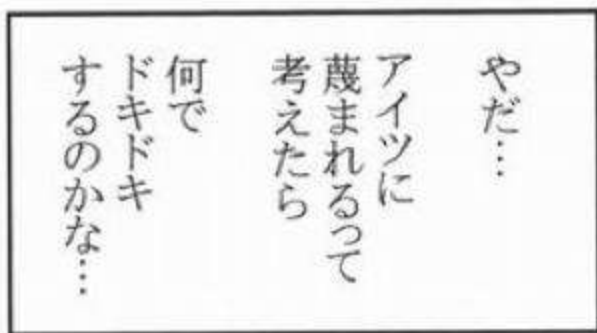 やだ…
アイツに
蔑まれるって
考えたら
何で
ドキドキ
するのかな…